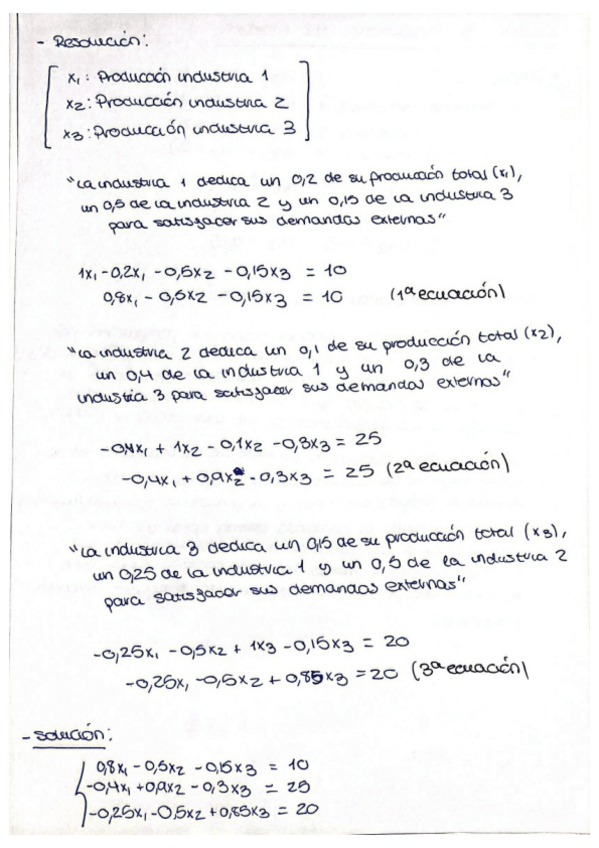 - Resolución:
x₁: Producción industria 1
x₂: Producción industria 2
x₃: Producción industria 3
"La industria 1 dedica un 0,2 de su producción total (x₁),
un 0,5 de la industria 2 y un 0,15 de la industria 3
para satisfacer sus demandas externas"
1x₁ - 0,2x₁ - 0,5x₂ - 0,15x₃ = 10
0,8x₁ - 0,5x₂ - 0,15x₃ = 10 (1ª ecuación)
"La industria 2 dedica un 0,1 de su producción total (x₂),
un 0,4 de la industria 1 y un 0,3 de la
industria 3 para satisfacer sus demandas externas"
-0,4x₁ + 1x₂ - 0,1x₂ - 0,3x₃ = 25
-0,4x₁ + 0,9x₂ - 0,3x₃ = 25 (2ª ecuación)
"La industria 3 dedica un 0,15 de su producción total (x₃),
un 0,25 de la industria 1 y un 0,5 de la industria 2
para satisfacer sus demandas externas"
-0,25x₁ - 0,5x₂ + 1x₃ - 0,15x₃ = 20
-0,25x₁ - 0,5x₂ + 0,85x₃ = 20 (3ª ecuación)
- Solución:
0,8x₁ - 0,5x₂ - 0,15x₃ = 10
-0,4x₁ + 0,9x₂ - 0,3x₃ = 25
-0,25x₁ - 0,5x₂ + 0,85x₃ = 20